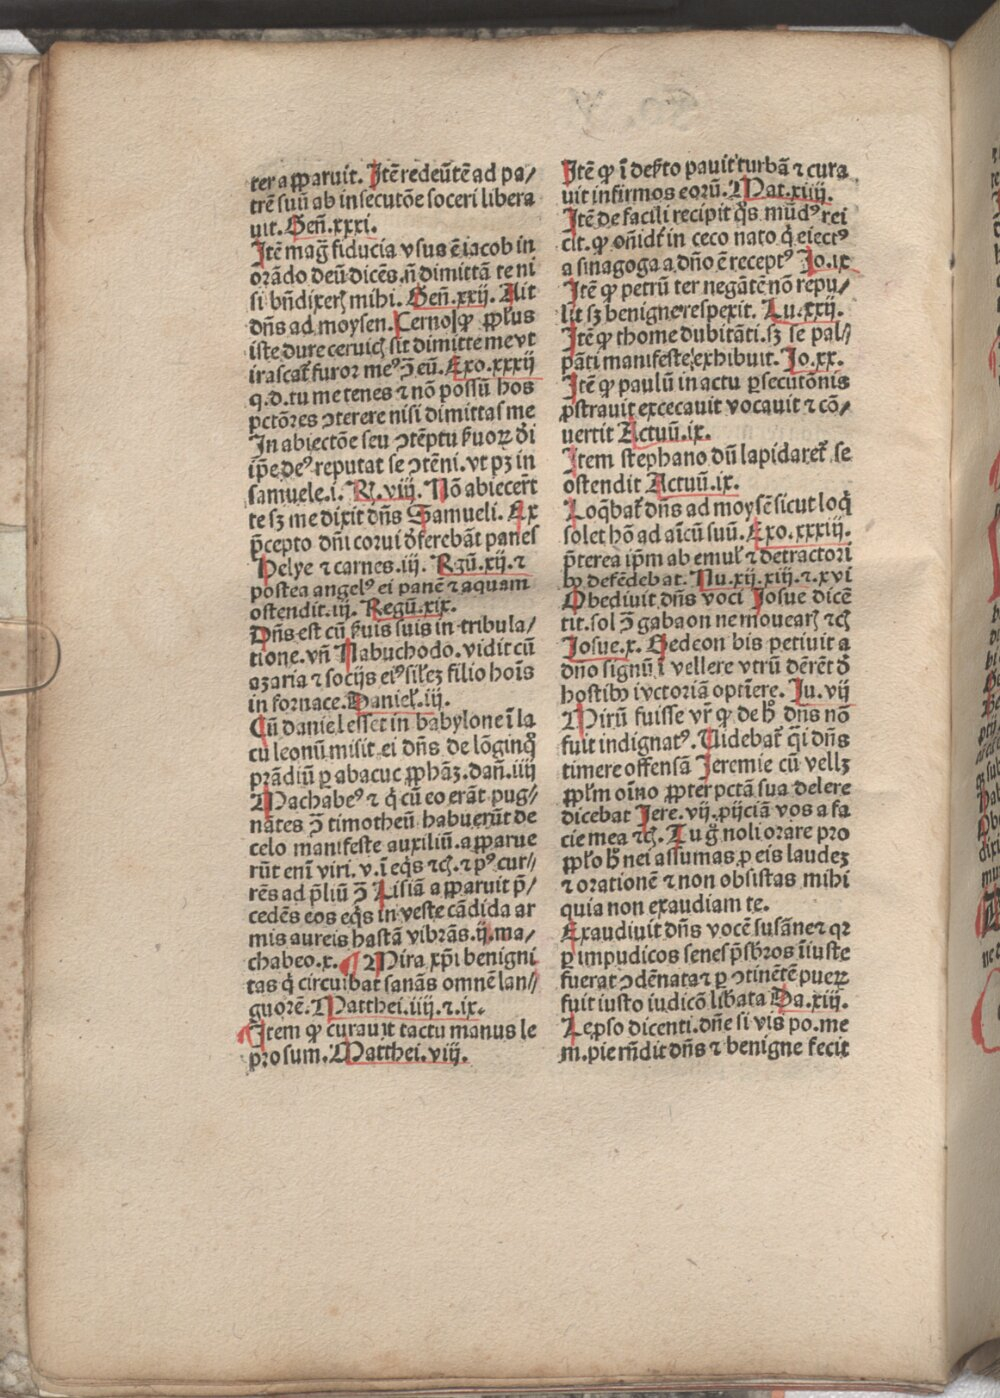 ter apparuit. Itē redeūtē ad pa/
trē suū ab insecutōe soceri libera
uit. Geñ.xxxi.
Itē mag̃ fiducia vsus ē iacob in
orādo deū dicēs.ñ dimittā te ni
si bñdixerꝭ mihi. Geñ.xxij. Ait
dñs ad moysen. Cerno ꝙ ppl̕us
iste dure ceruicꝭ sit dimitte me vt
irascat̕ furor me⁹ ↄ̄ eū. Exo.xxxij
q.d.tu me tenes ⁊ nō possū hos
pctōres ↄterere nisi dimittas me
In abiectōe seu ↄtēptu ẜuoꝝ dī
ip̄e de⁹ reputat se ↄtēni.vt pꝫ in
samuele.i. Rꝭ.viij. Nō abiecer̄t
te sꝫ me dixit dñs Samueli. Ex
p̄cepto dñi corui d̕ferebāt panes
Helye ⁊ carnes.iij. Rgū.xij.⁊
postea angel⁹ ei panē ⁊ aquam
ostendit.iij. Regū.xix.
Dñs est cū ẜuis suis in tribula/
tione.vñ Nabuchodo.vidit cū
azaria ⁊ socijs ei⁹ sil̕eꝫ filio hoīs
in fornace. Daniel̕.iij.
Cū daniel esset in babylone ī la
cu leonū misit ei dñs de lōginq̊
prādiū ꝑ abacuc ꝓphāꝫ.dañ.iiij
Machabe⁹ ⁊ q̇ cū eo erāt pug/
nātes ↄ̄ timotheū habuerūt de
celo manifeste auxiliū.apparue
rūt enī viri.v.ī eq̇s ⁊cꝭ.⁊ p⁹ cur/
rēs ad p̄liū ↄ̄ Lisiā apparuit p̄/
cedēs eos eq̇s in veste cādida ar
mis aureis hastā vibrās.ij.ma/
chabeo.x. ¶ Mira xp̄i benigni
tas q̇ circuibat sanās omnē lan/
guorē. Matthei.iiij.⁊.ix.
¶ Item ꝙ curauit tactu manus le
prosum. Matthei.viij.
Itē ꝙ ī deẜto pauit turbā ⁊ cura
uit infirmos eorū. Mat.xiiij.
Itē de facili recipit q̊s mūd⁹ rei
cit.ꝙ oñidt̕ in ceco nato q̇ eiect⁹
a sinagoga a dño ē recept⁹ Jo.ix
Itē ꝙ petrū ter negātē nō repu/
lit sꝫ benigne respexit. Lu.xxij.
Itē ꝙ thome dubitāti.sꝫ se pal/
pāti manifeste exhibuit. Jo.xx.
Itē ꝙ paulū in actu ꝑsecutōnis
ꝓstrauit excecauit vocauit ⁊ cō/
uertit Actuū.ix.
Item stephano dū lapidaret̕ se
ostendit Actuū.ix.
Loq̄bat̕ dñs ad moysē sicut loq̇
solet hō ad aīcū suū. Exo.xxxiij.
p̄terea ip̄m ab emul̕ ⁊ detractori
bꝰ defēdebat. Nu.xij.xiij.⁊.xvi
Obediuit dñs voci Josue dicē
tit.sol ↄ̄ gabaon ne mouearꝭ ⁊cꝭ
Josue.x. Gedeon bis petiuit a
dño signū ī vellere vtrū dēret̕ d̕
hostibꝰ ivctoriā optīere. Ju.vij
Mirū fuisse vr̄ ꝙ de hͦ dñs nō
fuit indignat⁹. Uidebat̕ q̄i dñs
timere offensā Jeremie cū vellꝫ
ppl̕m oīno ꝓpter pctā sua delere
dicebat Jere.vij.ꝓijciā vos a fa
cie mea ⁊cꝭ. Tu g̊ noli orare pro
ppl̕o hͦ nei assumas ꝓ eis laudeꝫ
⁊ orationē ⁊ non obsistas mihi
quia non exaudiam te.
Exaudiuit dñs vocē susāne ⁊ qꝛ
ꝑ impudicos senes p̄sbr̄os īiuste
fuerat ↄdēnata ⁊ ꝑ ↄtinētē puerꝝ
fuit iusto iudicō lib̕ata Da.xiij.
Leproso dicenti.dñe si vis po.me
m.pie rñdit dñs ⁊ benigne fecit